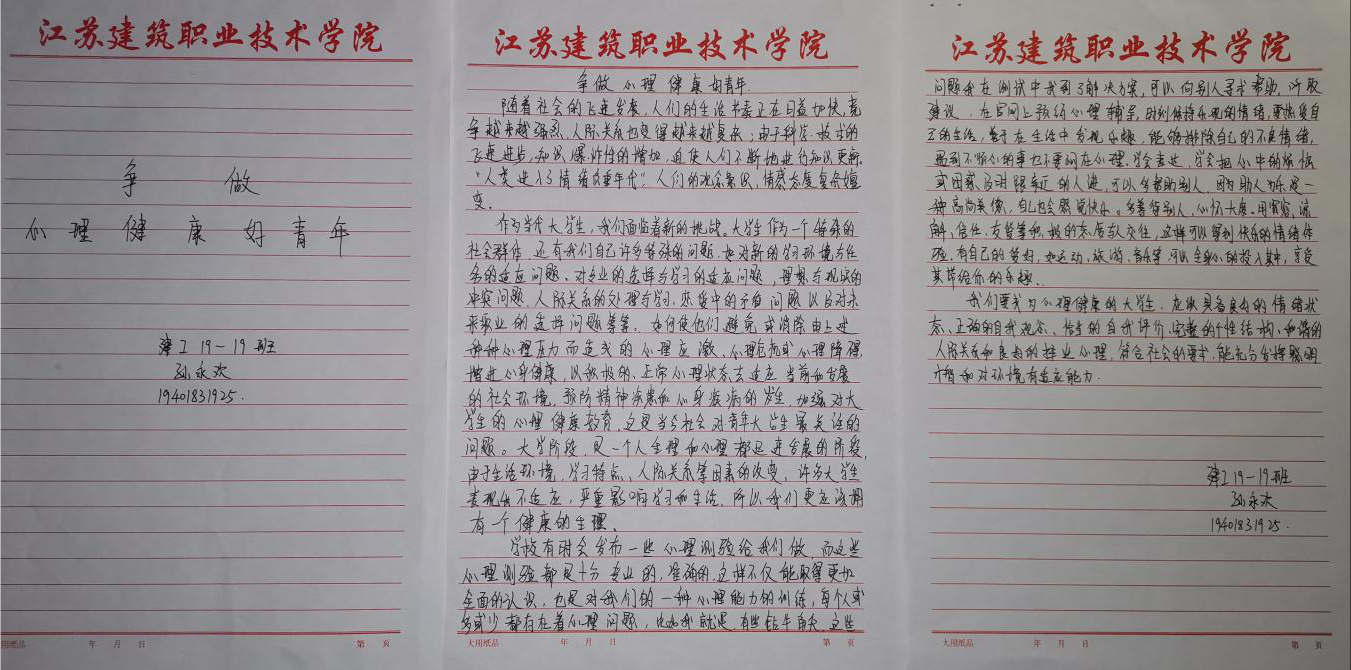 江苏建筑职业技术学院
争 做
心 理 健 康 好 青 年
建工19-19班
孙永欢
19401831925.
大用纸品 年 月 日 第 页
江苏建筑职业技术学院
争做心理健康好青年.
随着社会的飞速发展,人们的生活节奏正在日益加快,竞
争越来越强烈,人际关系也变得越来越复杂;由于科学、技术的
飞速进步,知识爆炸性的增加,迫使人们不断地进行知识更新.
“人类进入了情绪负重年代”,人们的观念意识,情感态度复杂嬗
变.
作为当代大学生,我们面临着新的挑战。大学生作为一个特殊的
社会群体,还有我们自己许多特殊的问题,如对新的学习环境与任
务的适应问题、对专业的选择与学习的适应问题,理想与现实的
冲突问题,人际关系的处理与学习、恋爱中的矛盾问题以及对未
来职业的选择问题等等。如何使他们避免或消除由上述
种种心理压力而造成的心理应激、心理危机或心理障碍,
增进心身健康,以积极的、正常心理状态去适应当前和发展
的社会环境,预防精神疾患和心身疾病的发生,加强对大
学生的心理健康教育,这是当今社会对青年大学生最关注的
问题。大学阶段,是一个人生理和心理都迅速发展的阶段,
由于生活环境、学习特点、人际关系等因素的改变,许多大学生
表现出不适应,严重影响学习和生活,所以我们更应该拥
有一个健康的生理。
学校有时会发布一些心理测验给我们做,而这些
心理测验都是十分专业的,准确的,这样不仅能取得更加
全面的认识,也是对我们的一种心理能力的训练,每个人或
多或少都存在着心理问题,比如我就是有些钻牛角尖,这些
大用纸品 年 月 日 第 页
江苏建筑职业技术学院
问题我在测试中找到了解决方案,可以向别人寻求帮助,听取
建议.在官网上预约心理辅导,时刻保持乐观的情绪,要热爱自
己的生活,善于在生活中发现乐趣,能够排除自己的不良情绪,
遇到不顺心的事也不要闷在心理.学会表达,学会把心中的烦恼
或困惑及时跟亲近的人讲,可以多帮助别人,因为助人为乐是一
种高尚美德,自己也会感觉快乐.多善待别人,心怀大度.用宽容,谅
解、信任、友爱等积极的态度与人交往,这样可以得到快乐的情绪体
验.有自己的爱好,如运动、旅游、音乐等,可以全身心的投入其中,享受
其带给你的乐趣.
我们要成为心理健康的大学生,应做具备良好的情绪状
态、正确的自我观念、恰当的自我评价、完整的个性结构、和谐的
人际关系和良好的择业心理,符合社会的要求,能充分发挥聪明
才智和对环境有适应能力.
建工19-19班
孙永欢
19401831925.
大用纸品 年 月 日 第 页